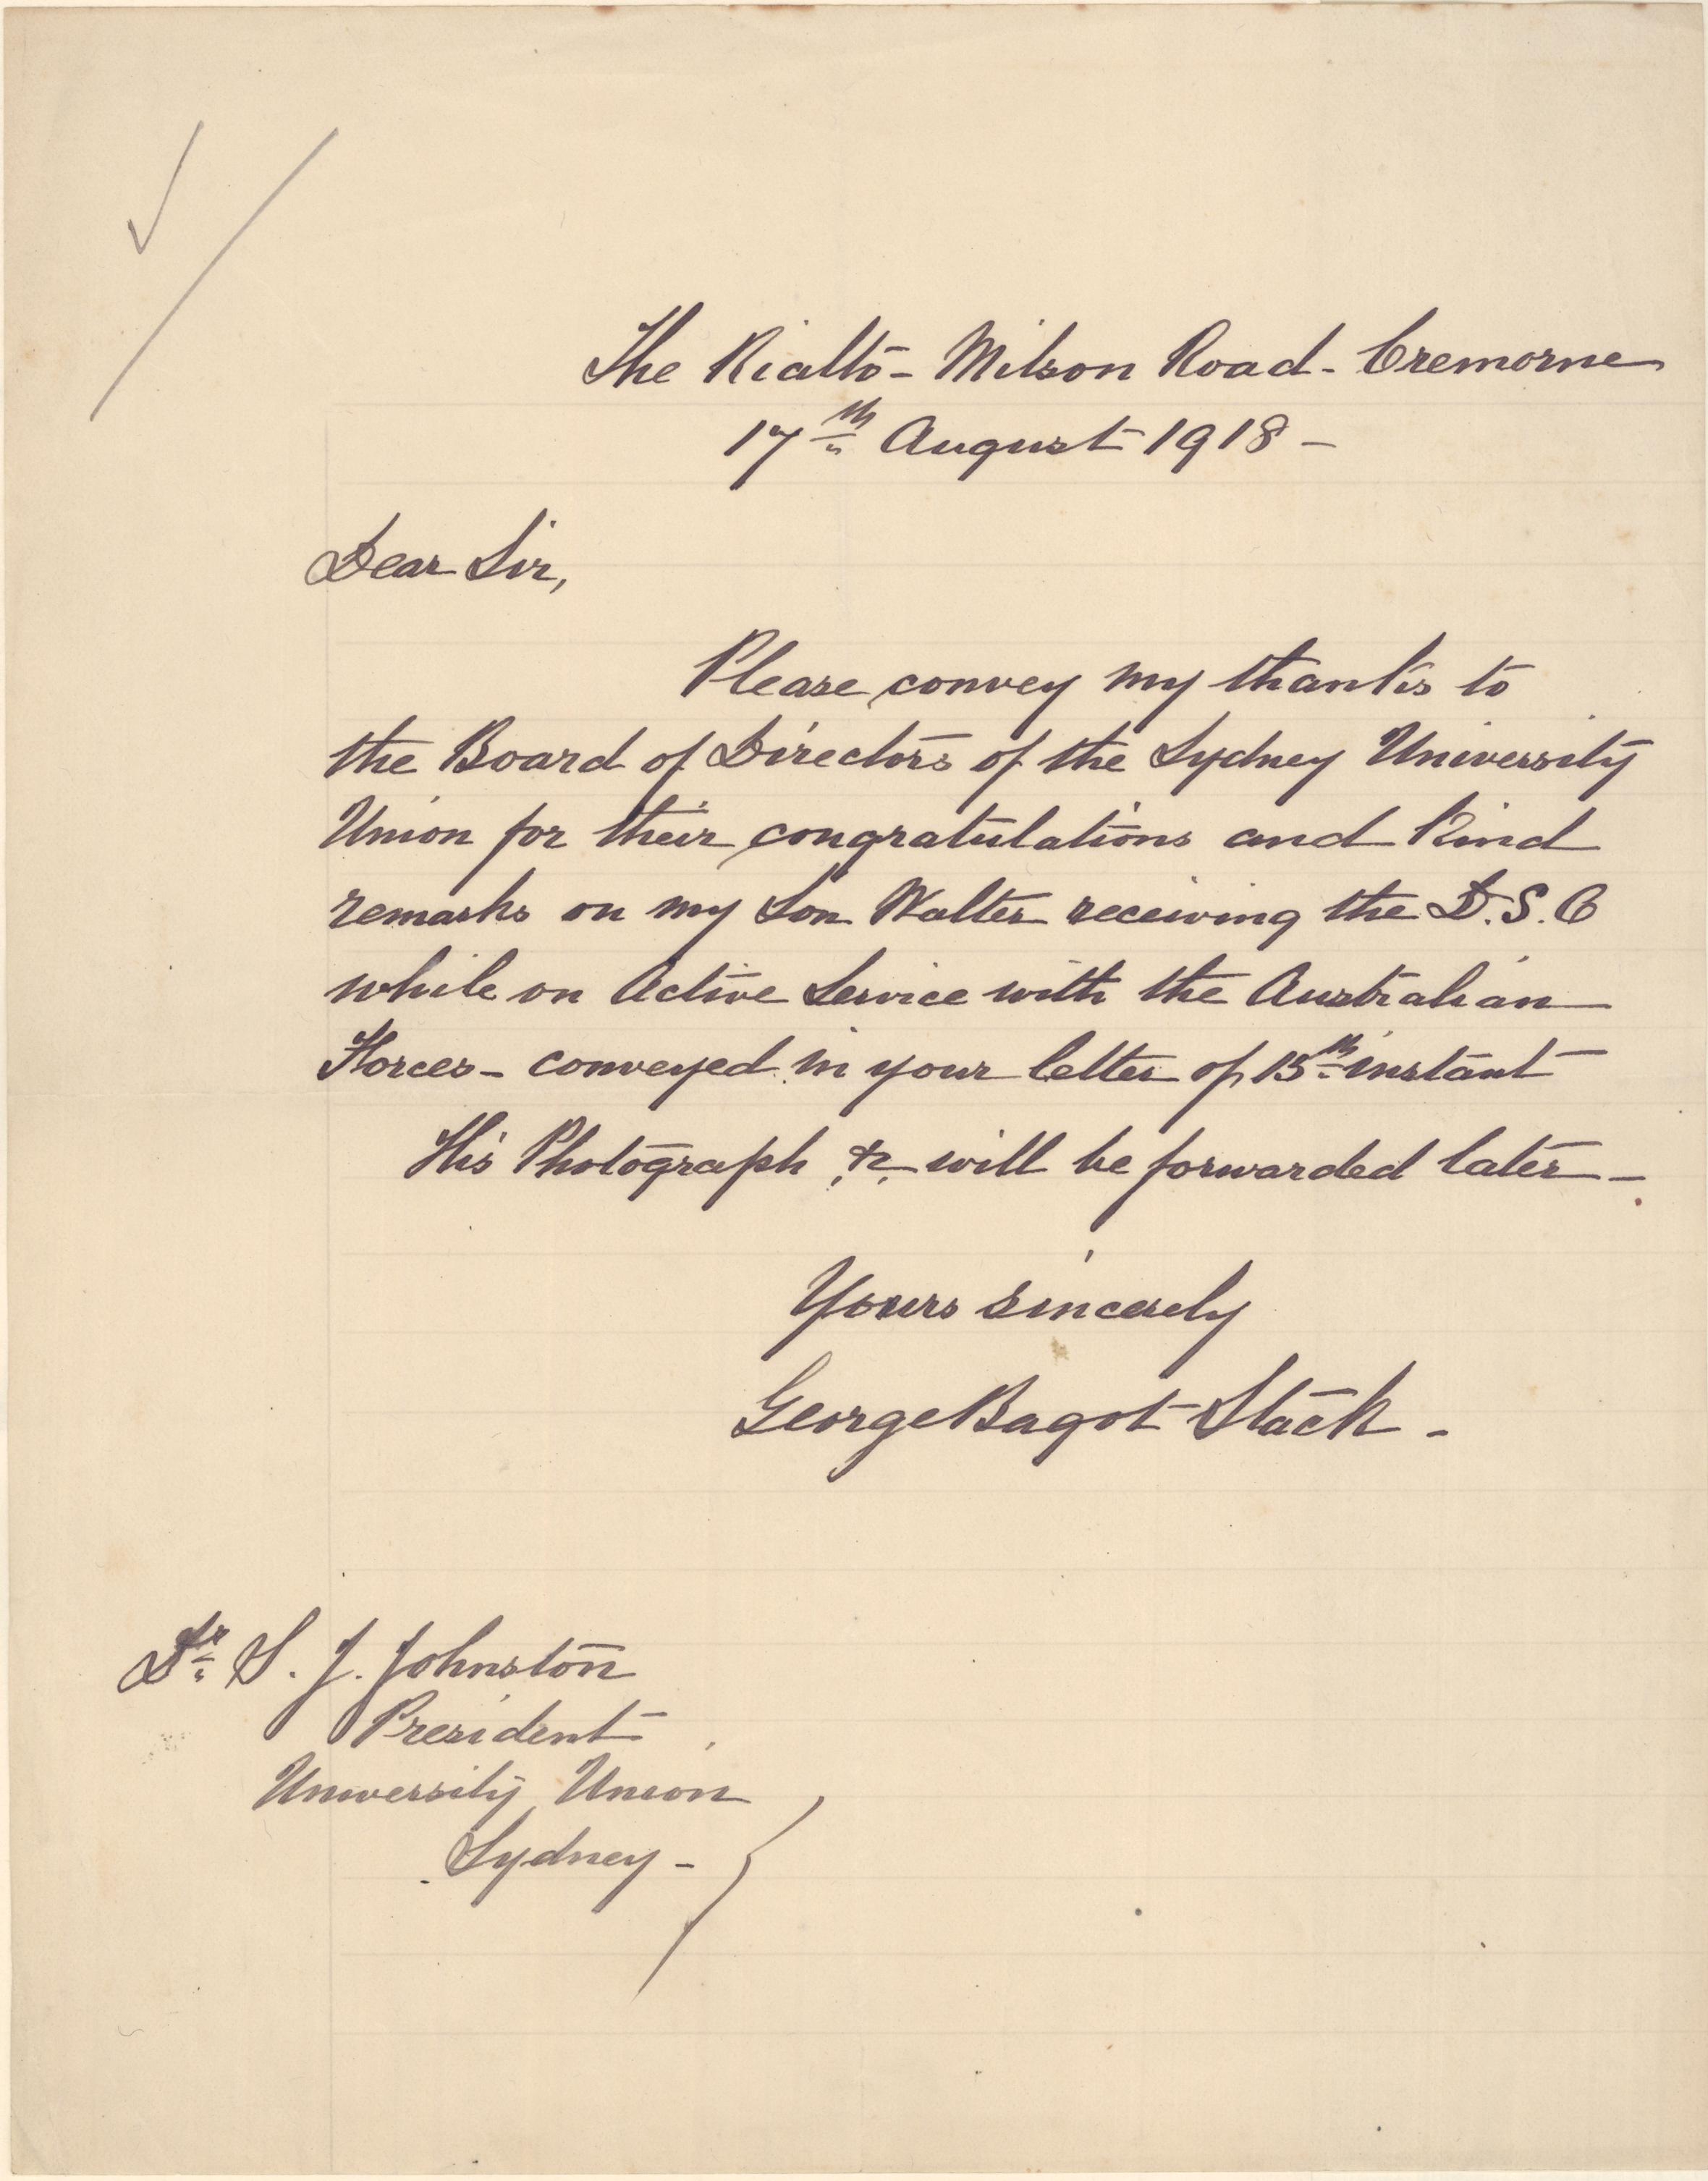 The Rialto - Milson Road - Cremorne
17th August 1918 -
Dear Sir,
Please convey my thanks to
the Board of Directors of the Sydney University
Union for their congratulations and kind
remarks on my Son Walter receiving the D.S.O
while on Active Service with the Australian
Forces - conveyed in your letter of 15th instant
His Photograph &c will be forwarded later -
Yours sincerely
George Bagot Stack -
Dr S. J. Johnston
President
University Union
Sydney -